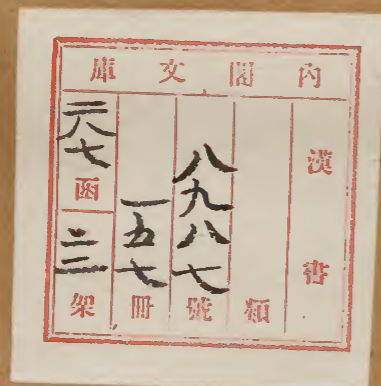 內閣文庫
漢書
類
八九八七號
一五七冊
二八七函
二二架